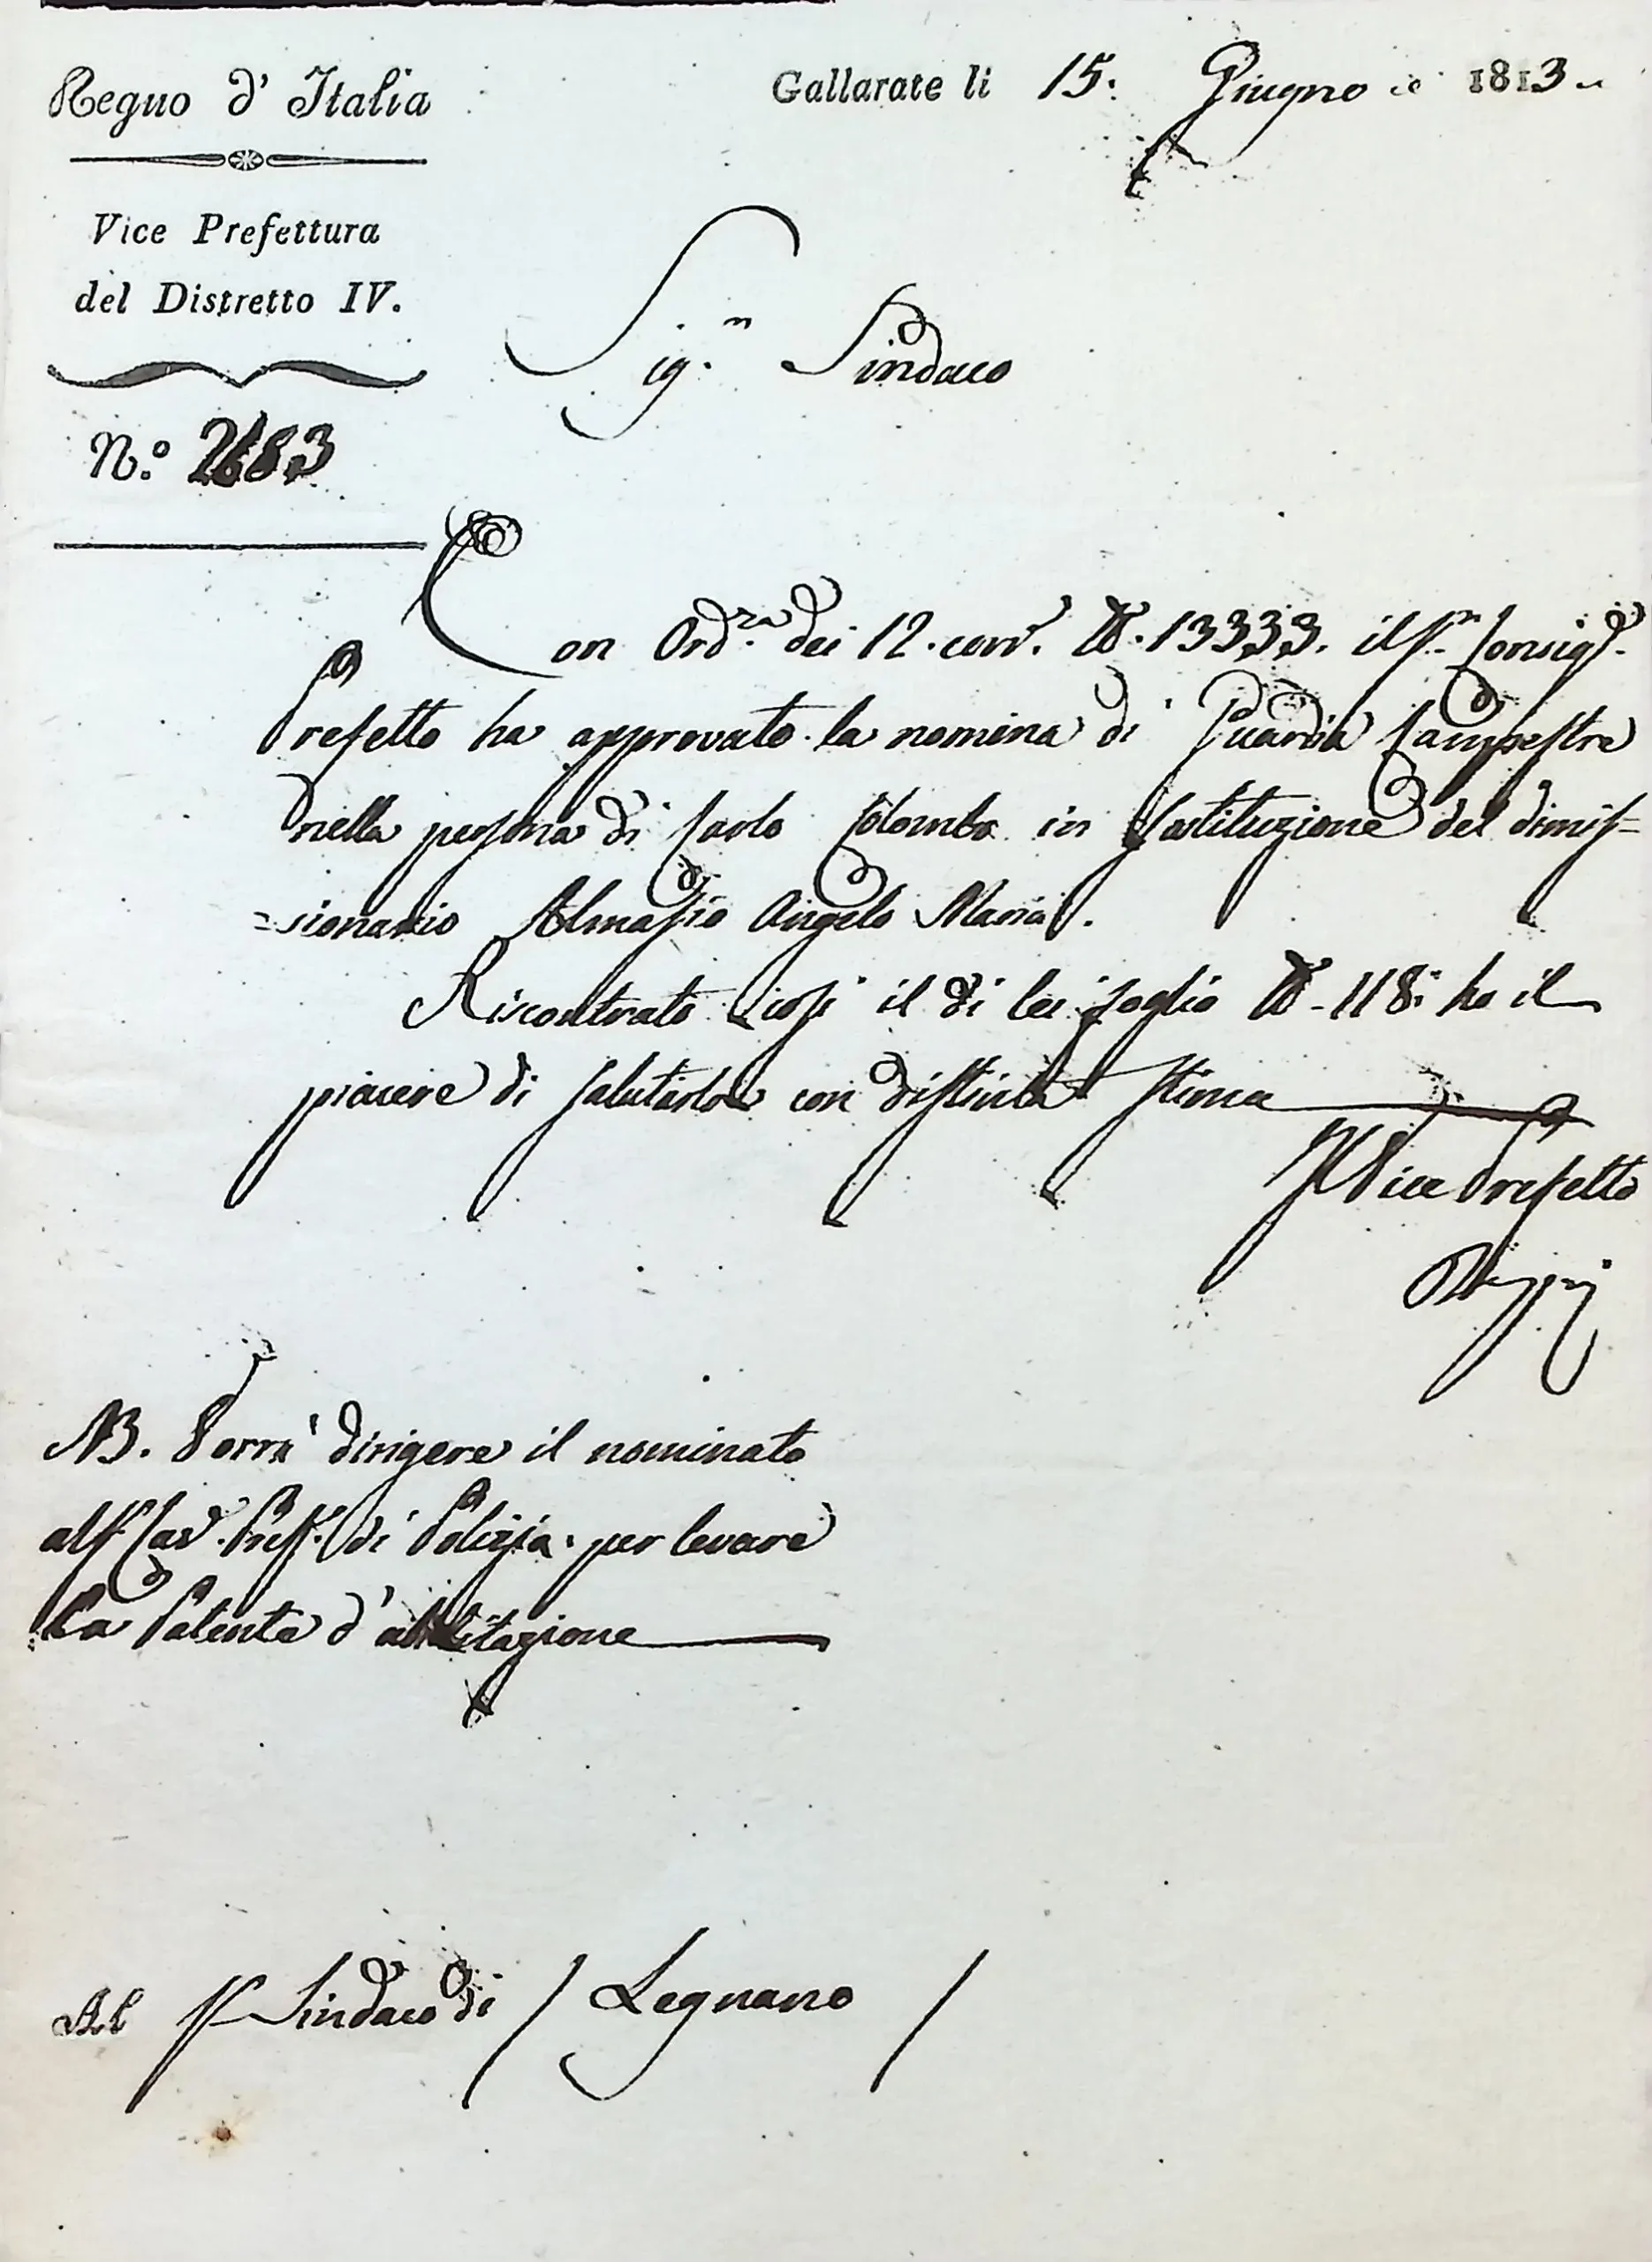 Regno d' Italia
Gallarate li 15. Giugno 1813
Vice Prefettura
del Distretto IV.
Sig.r Sindaco
N.o
Con Ord.za dei 12. corr. N. 13333. il S.r Consigl.
Prefetto ha approvato la nomina di Guardia Campestre
nella persona di Carlo Colombo in sostituzione del dimis=
=sionario Almasio Angelo Maria.
Riscontrato così il di lei foglio N. 118. ho il
piacere di salutarla con distinta stima
Il Vice Prefetto
NB. Vorrà dirigere il nominato
al S.r Cav. Pref. di Polizia per levare
la Patente d'abilitazione
Al S.r Sindaco di / Legnano /